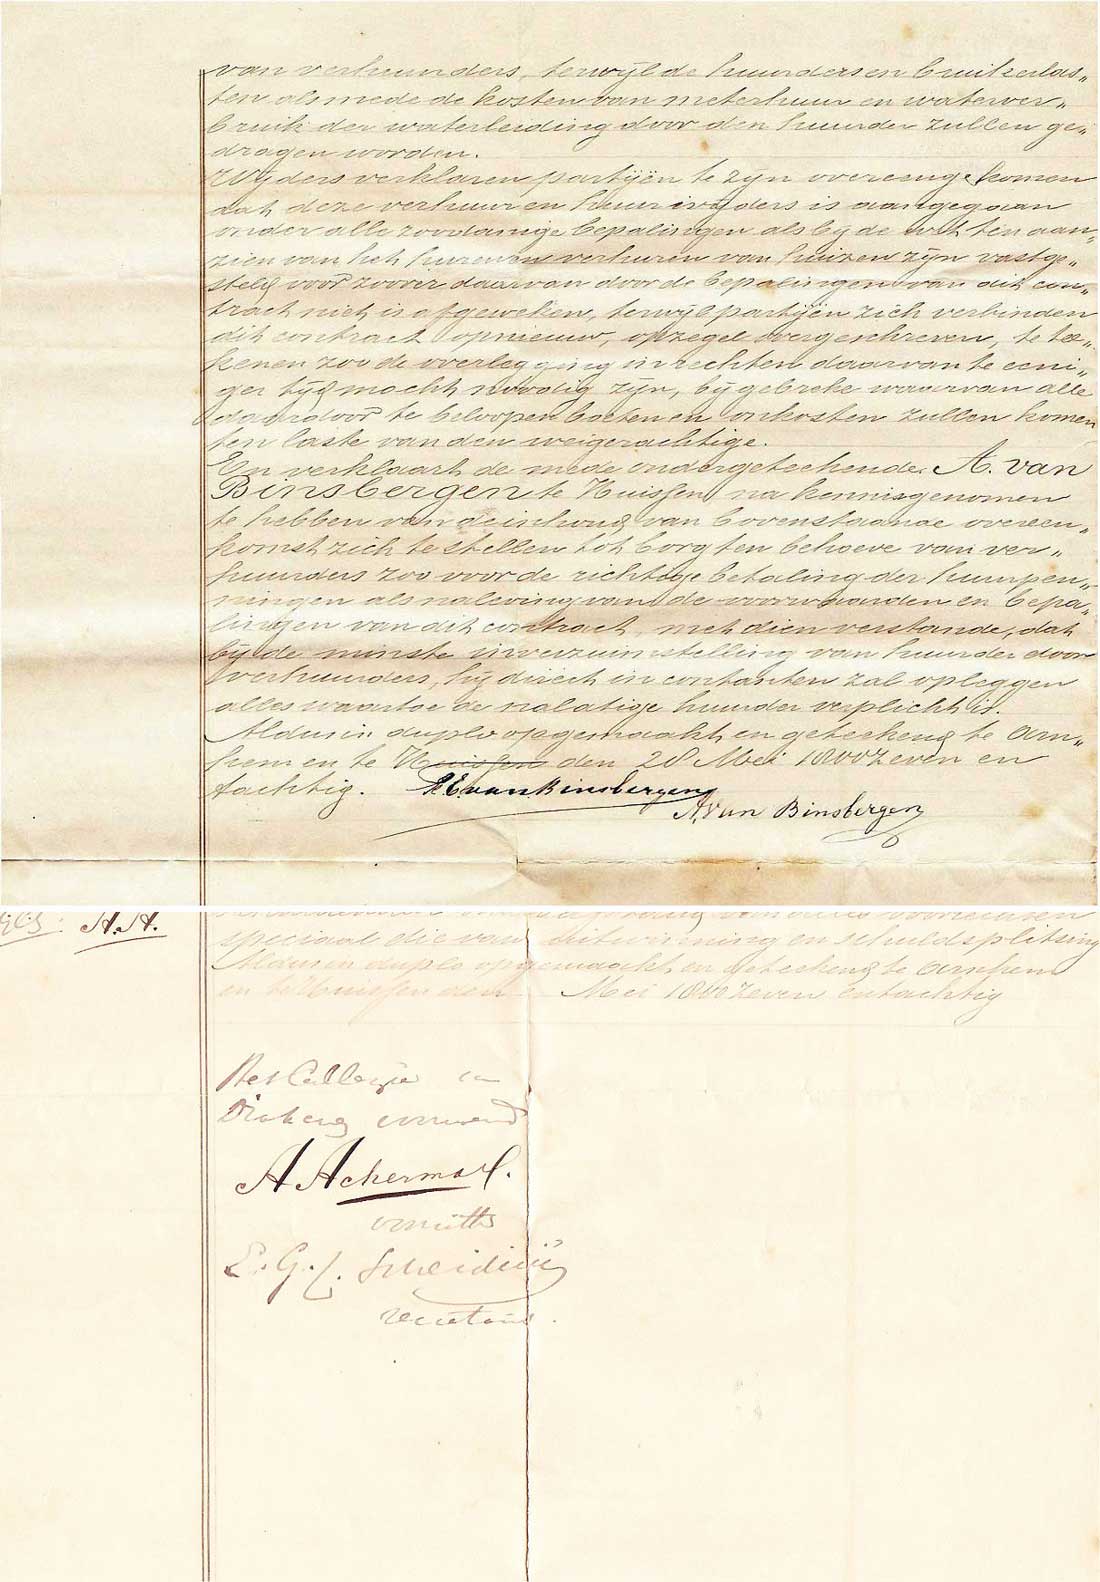 van verhuurders, terwijl de huurders en bruikerlas„
ten alsmede de kosten van meterhuur en waterver„
bruik der waterleiding door den huurder zullen ge„
dragen worden.
Wijders verklaren partijen te zijn overeengekomen
dat deze verhuur en huur wijders is aangegaan
onder alle zoodanige bepalingen als bij de wet ten aan„
zien van het huren en verhuren van huizen zijn vastge„
steld voor zoover daarvan door de bepalingen van dit con„
tract niet is afgeweken, terwijl partijen zich verbinden
dit contract opnieuw, op zegel overgeschreven, te tee„
kenen zoo de overlegging in rechten daarvan te eeni„
ger tijd mocht noodig zijn, bij gebreke waarvan alle
daardoor te beloopen boeten en onkosten zullen komen
ten laste van den weigerachtige.
En verklaart de mede ondergeteekende A. van
Binsbergen te Huissen na kennisgenomen
te hebben van de inhoud van bovenstaande overeen„
komst zich te stellen tot borg ten behoeve van ver„
huurders zoo voor de richtige betaling der huurpen„
ningen als naleving van de voorwaarden en bepa„
lingen van dit contract, met dien verstande, dat
bij de minste inverzuimstelling van huurder door
verhuurders, hij direct in contanten zal opleggen
alles waartoe de nalatige huurder verplicht is.
Aldus in duplo opgemaakt en geteekend te Arn„
hem en te Huissen den 28 Mei 1800 zeven en
tachtig. E van Binsbergen
A. van Binsbergen
A.A.
speciaal die van uitwinning en schuldsplitsing
Aldus in duplo opgemaakt en geteekend te Arnhem
en te Huissen den Mei 1800 zeven en tachtig
Het Collegie van
Diakenen voornoemd
A Ackerma
voorzitter
E. G. C. Scheidius
secretaris.